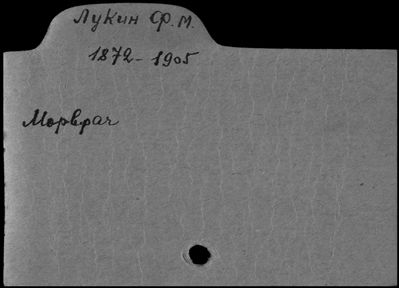 Лукин Ф.М.
1872-1905
Морврач